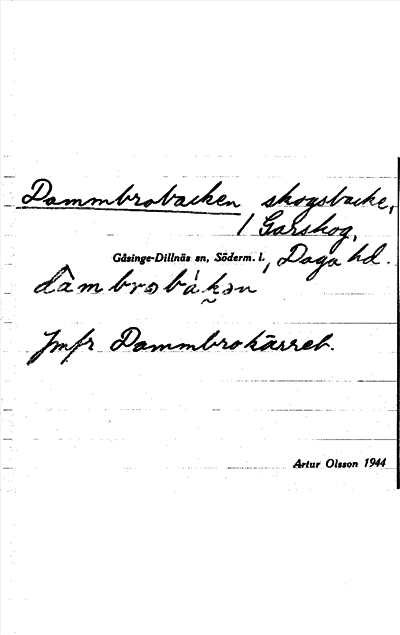 Dammbrobacken skogsbacke,
/ Garskog,
Gåsinge-Dillnäs sn, Söderm. l., Daga hd.
dàm brω bákən
Jmfr Dammbrokärret.
Artur Olsson 1944